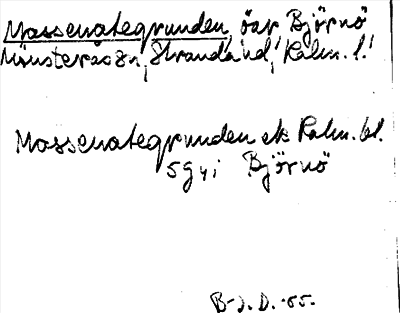 Massenategrunden, öar, Björnö
Mönsterås sn, Stranda hd, Kalm. l.
Massenategrunden ek Kalm. bl.
5g4i Björnö
B-J. D. -65.